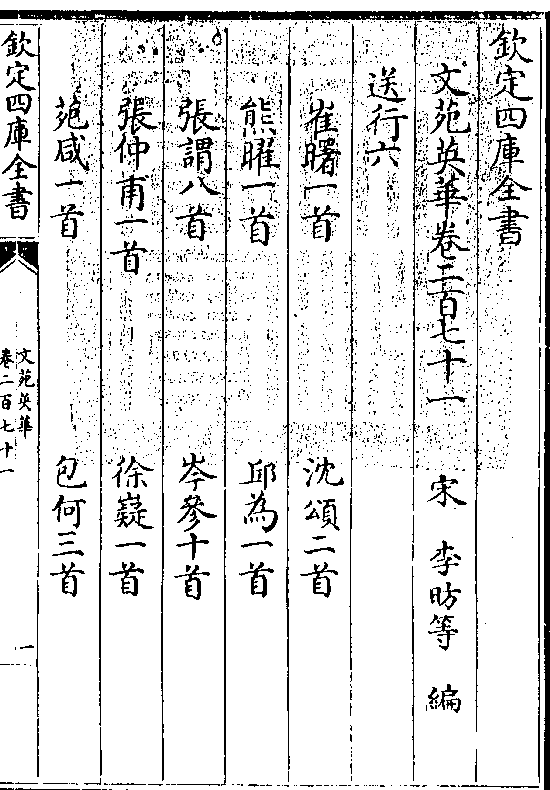 欽定四庫全書
文苑英華卷二百七十一 宋 李昉等 編
送行六
崔曙一首 沈頌二首
熊曜一首 邱為一首
張謂八首 岑參十首
張仲甫一首 徐嶷一首
苑咸一首 包何三首
欽定四庫全書
文苑英華
卷二百七十一
一